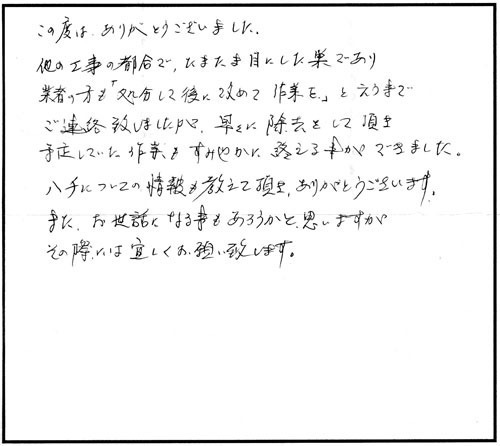 この度は、ありがとうございました。
他の工事の都合で、たまたま目にした巣であり
業者の方も「処分して後に改めて作業を。」と言う事で
ご連絡致しましたが、早々に除去をして頂き
予定していた作業もすみやかに終える事ができました。
ハチについての情報も教えて頂き、ありがとうございます。
また、お世話になる事もあろうかと思いますが
その際には宜しくお願い致します。